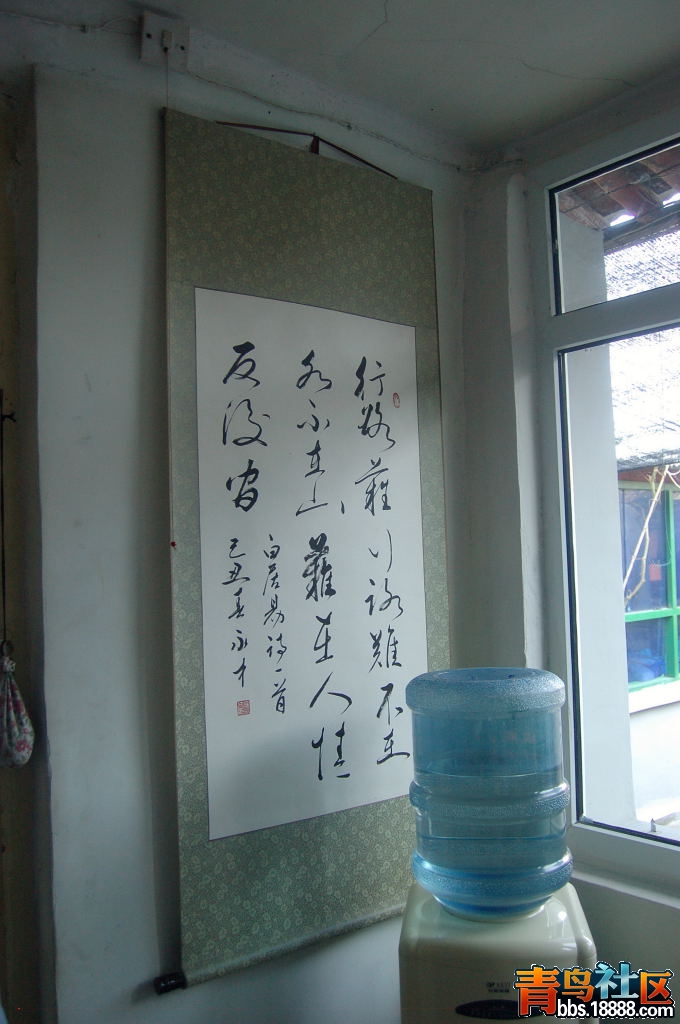 行路難行路難不在
水不在山難在人情
反復间
白居易诗一首
己丑春永才
青鸟社区
bbs.18888.com